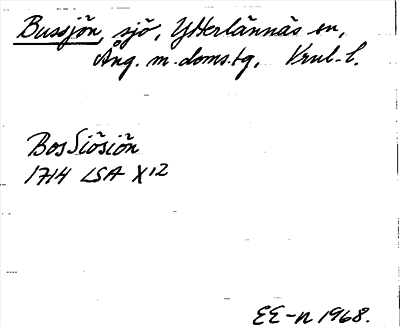 Bussjön, sjö, Ytterlännäs sn,
Ång. m. doms.tg, Vnl. l.
BosSiösiön
1714 LSA X12
EE-n 1968.